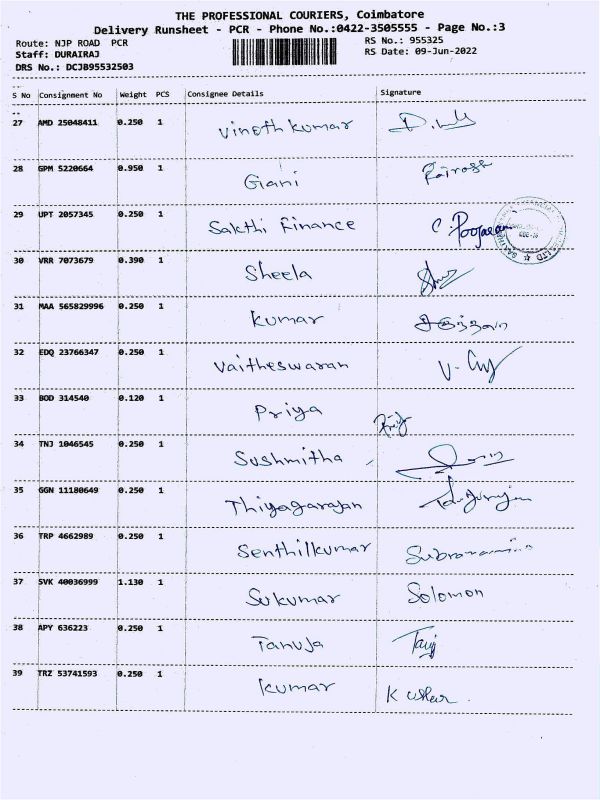 THE PROFESSIONAL COURIERS, Coimbatore
Delivery Runsheet - PCR - Phone No.:0422-3505555 - Page No.:3
Route: NJP ROAD PCR
RS No.: 955325
Staff: DURAIRAJ
RS Date: 09-Jun-2022
DRS No.: DCJB95532503
S No Consignment No Weight PCS Consignee Details Signature
27 AMD 25048411 0.250 1 Vinoth kumar
28 GPM 5220664 0.950 1 Giani
29 UPT 2057345 0.250 1 Sakthi Finance C. Poojaram
30 VRR 7073679 0.390 1 Sheela
31 MAA 565829996 0.250 1 kumar
32 EDQ 23766347 0.250 1 Vaitheswaran
33 BOD 314540 0.120 1 Priya
34 TNJ 1046545 0.250 1 Sushmitha
35 GGN 11180649 0.250 1 Thiyagarajan
36 TRP 4662989 0.250 1 Senthilkumar
37 SVK 40036999 1.130 1 Sukumar Solomon
38 APY 636223 0.250 1 Tanuja
39 TRZ 53741593 0.250 1 kumar